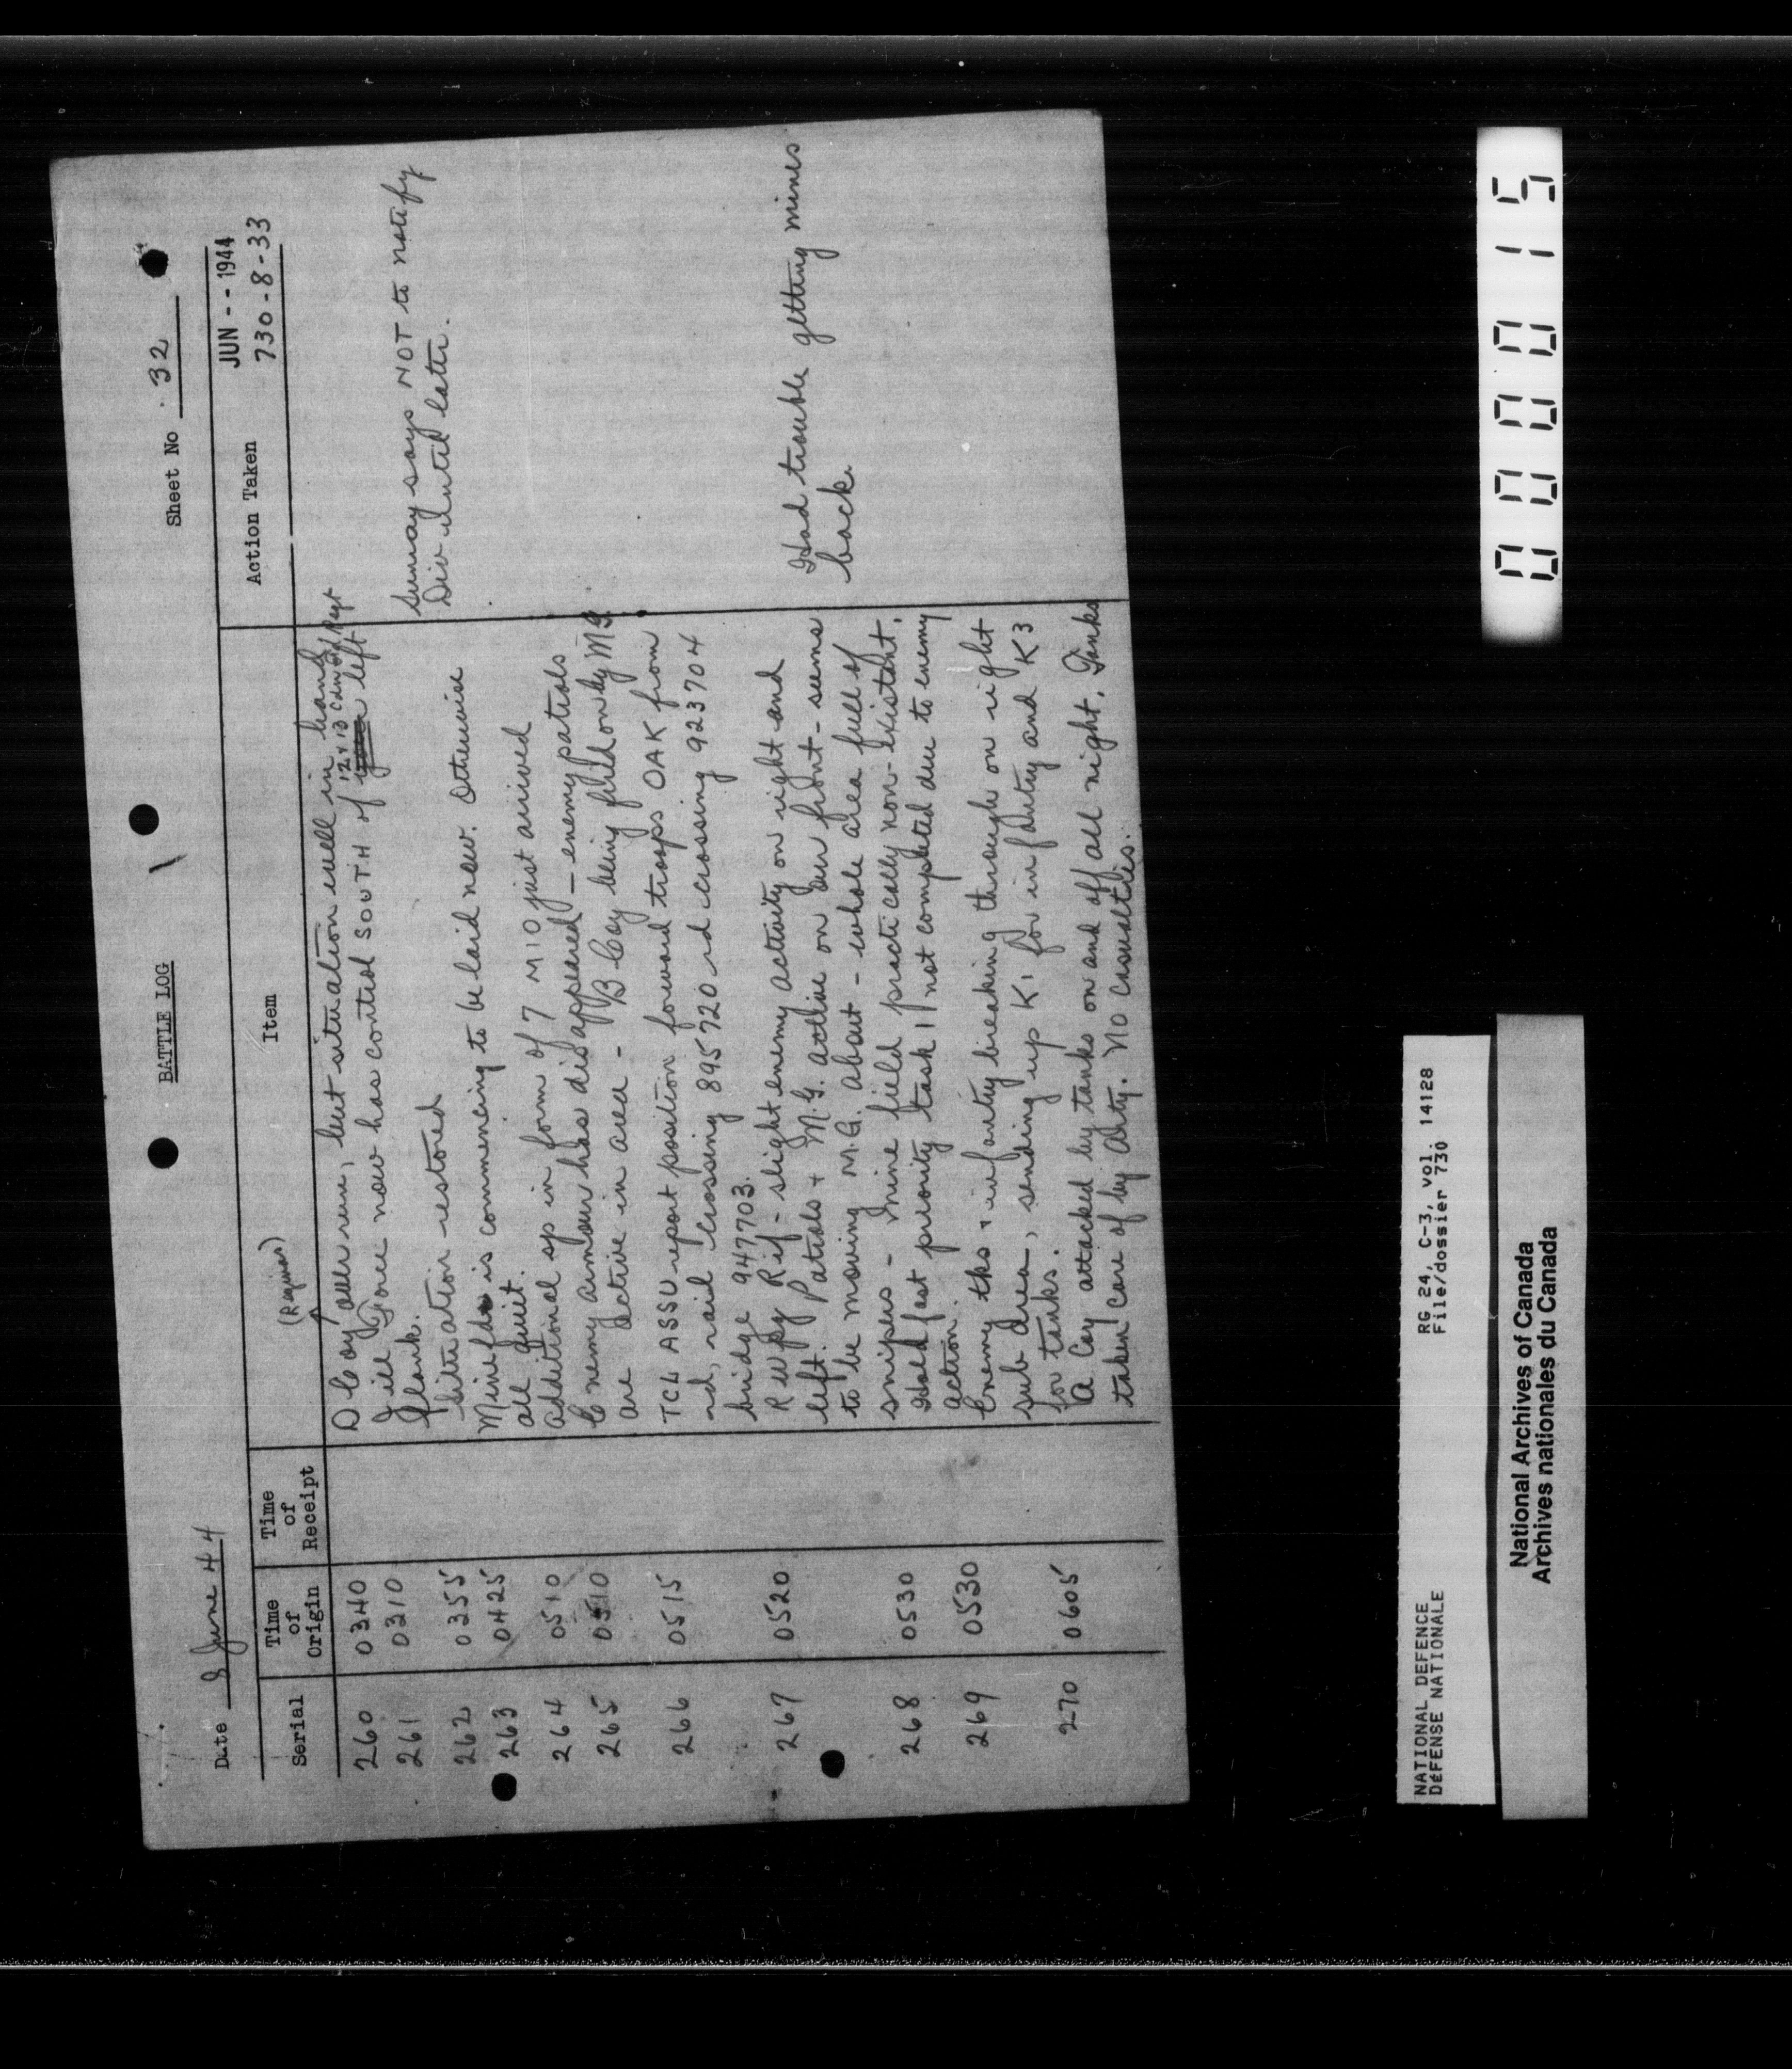 BATTLE LOG
Sheet No 32
Date 8 June 44
JUN - - 1944
730-8-33
Serial
Time of Origin
Time of Receipt
Item
Action Taken
(Reginas)
260 0340 D Coy over run, but situation well in hand
12 + 13 Cdn Fd Regt
261 0310 Jill Force now has control SOUTH of left
flank.
Sunray says NOT to notify
Div until later.
262 0355 Situation restored
263 0425 Minefds is commencing to be laid now. Otherwise
all quiet.
264 0510 Additional sp in form of 7 M10 just arrived
265 0510 Enemy armour has disappeared - enemy patrols
are active in area - B Coy being fired on by MG.
266 0515 TCL ASSU report position forward troops OAK from
rd, rail crossing 895720 rd crossing 923704
bridge 947703.
267 0520 R Wpg Rif - slight enemy activity on right and
left. Patrols + M.G. active on our front - seems
to be moving M.G. about - whole area full of
snipers - Mine field practically non-existant.
Had trouble getting mines
back
268 0530 Hold fast priority task 11 not completed due to enemy
action.
269 0530 Enemy tks + infantry breaking through on right
sub area, sending up K1 for infantry and K3
for tanks.
270 0605 A Coy attacked by tanks on and off all night. Tanks
taken care of by Arty. No casualties.
NATIONAL DEFENCE
DÉFENSE NATIONALE
RG 24, C-3, vol. 14128
File/dossier 730
National Archives of Canada
Archives nationales du Canada
000015